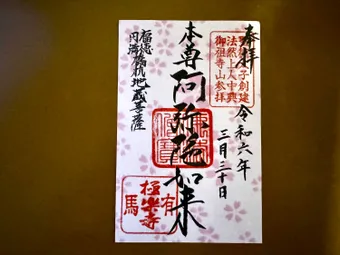 奉拝
法然上人中興
御祖寺山参拝
令和六年
三月三十日
本尊阿弥陀如来
福徳
地蔵菩薩
有馬
極楽寺